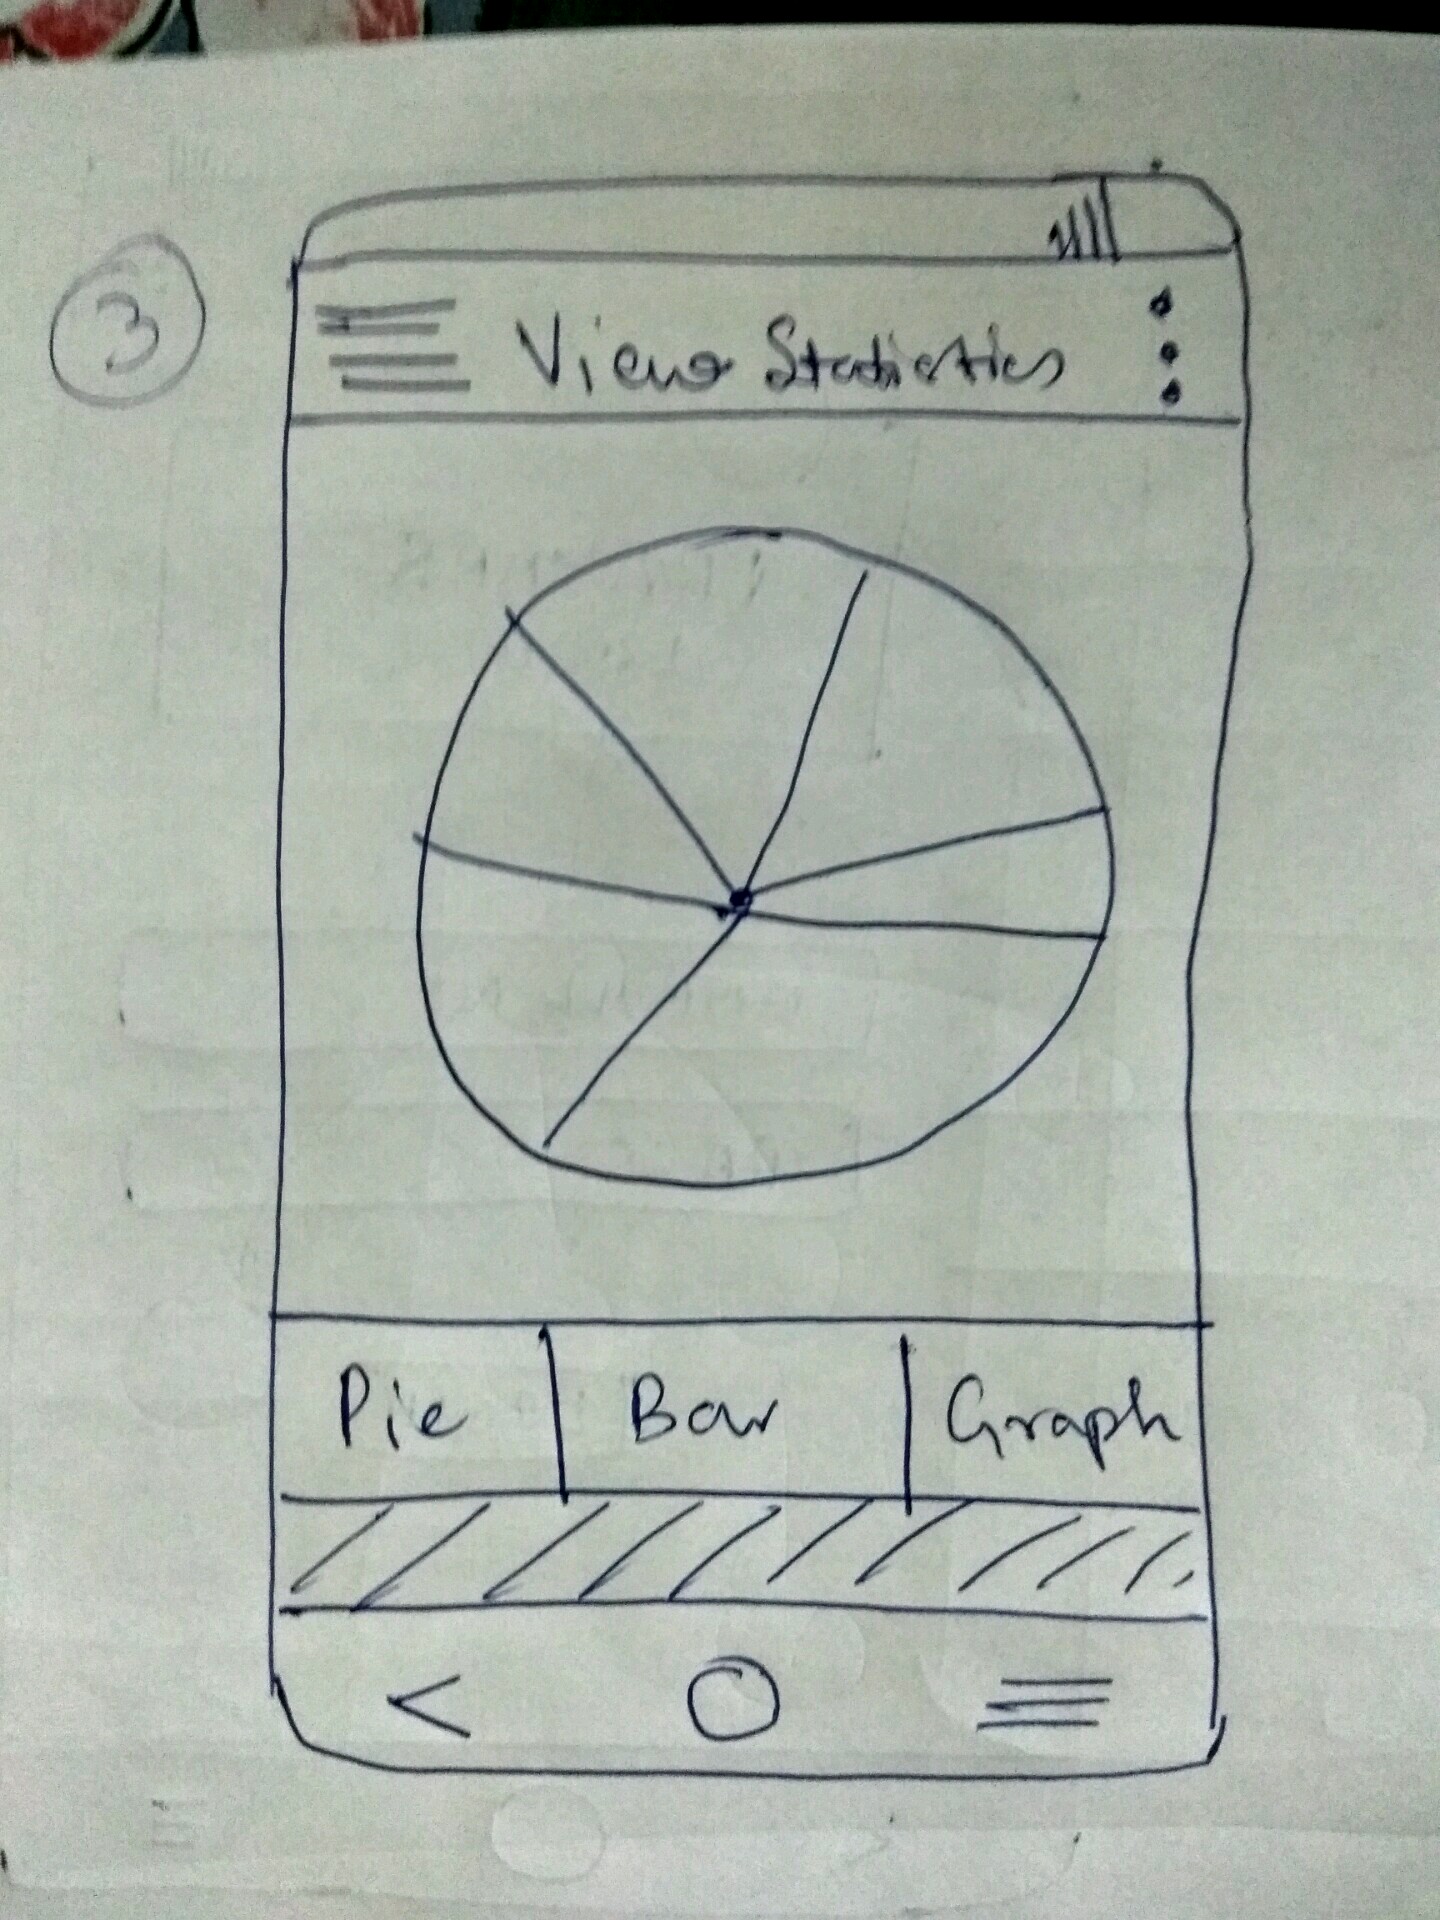 3
View Statistics
Pie Bar Graph